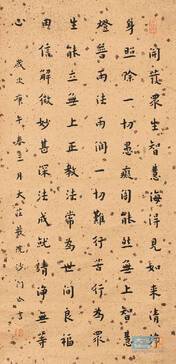 開發眾生智慧海得見如來清
身照除一切愚癡闇能然無上智慧
燈普雨法雨潤一切難行苦行為眾
生能立無上正教法常為世間良福
田信解微妙甚深法成就清淨無等
心 歲次庚午春三月大莊嚴院沙門